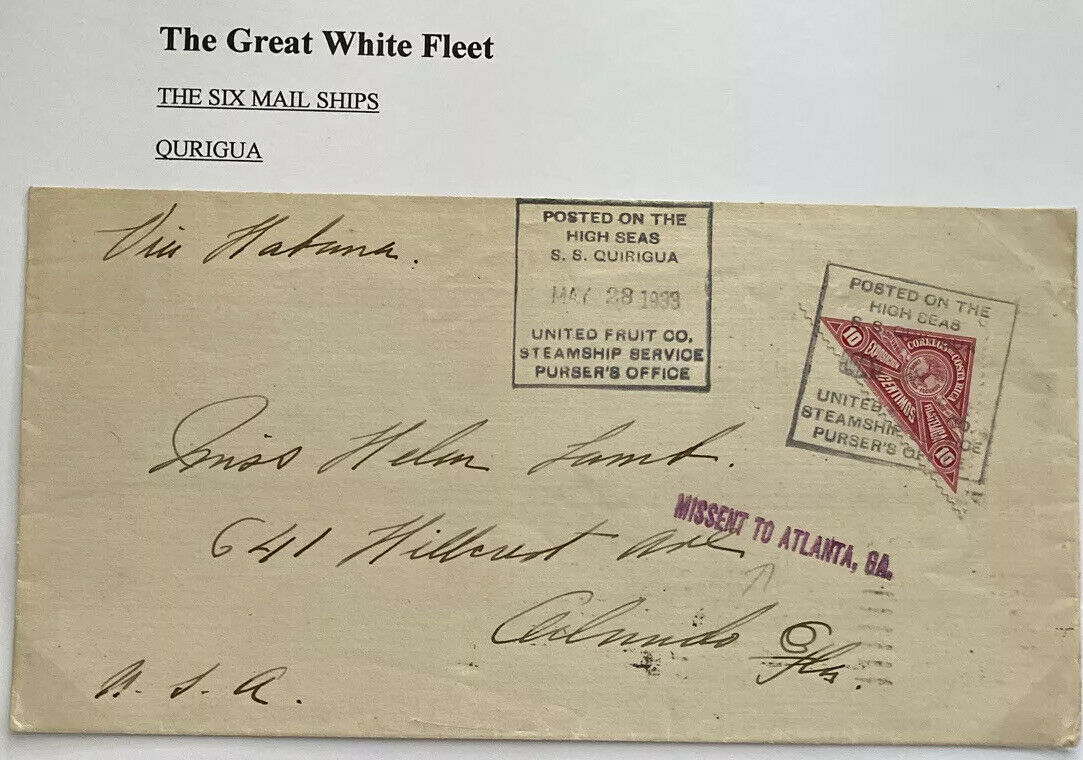 The Great White Fleet
THE SIX MAIL SHIPS
QURIGUA
Via Habana.
POSTED ON THE
HIGH SEAS
S. S. QUIRIGUA
MAY 28 1933
UNITED FRUIT CO.
STEAMSHIP SERVICE
PURSER'S OFFICE
POSTED ON THE
HIGH SEAS
S. S.
UNITED CO.
STEAMSHIP
PURSER'S
10
CORREOS DE COSTA RICA
CENTIMOS
10
Miss Helen Lamb.
641 Hillcrest Ave
MISSENT TO ATLANTA, GA.
Orlando
6
Fla.
U. S. A.